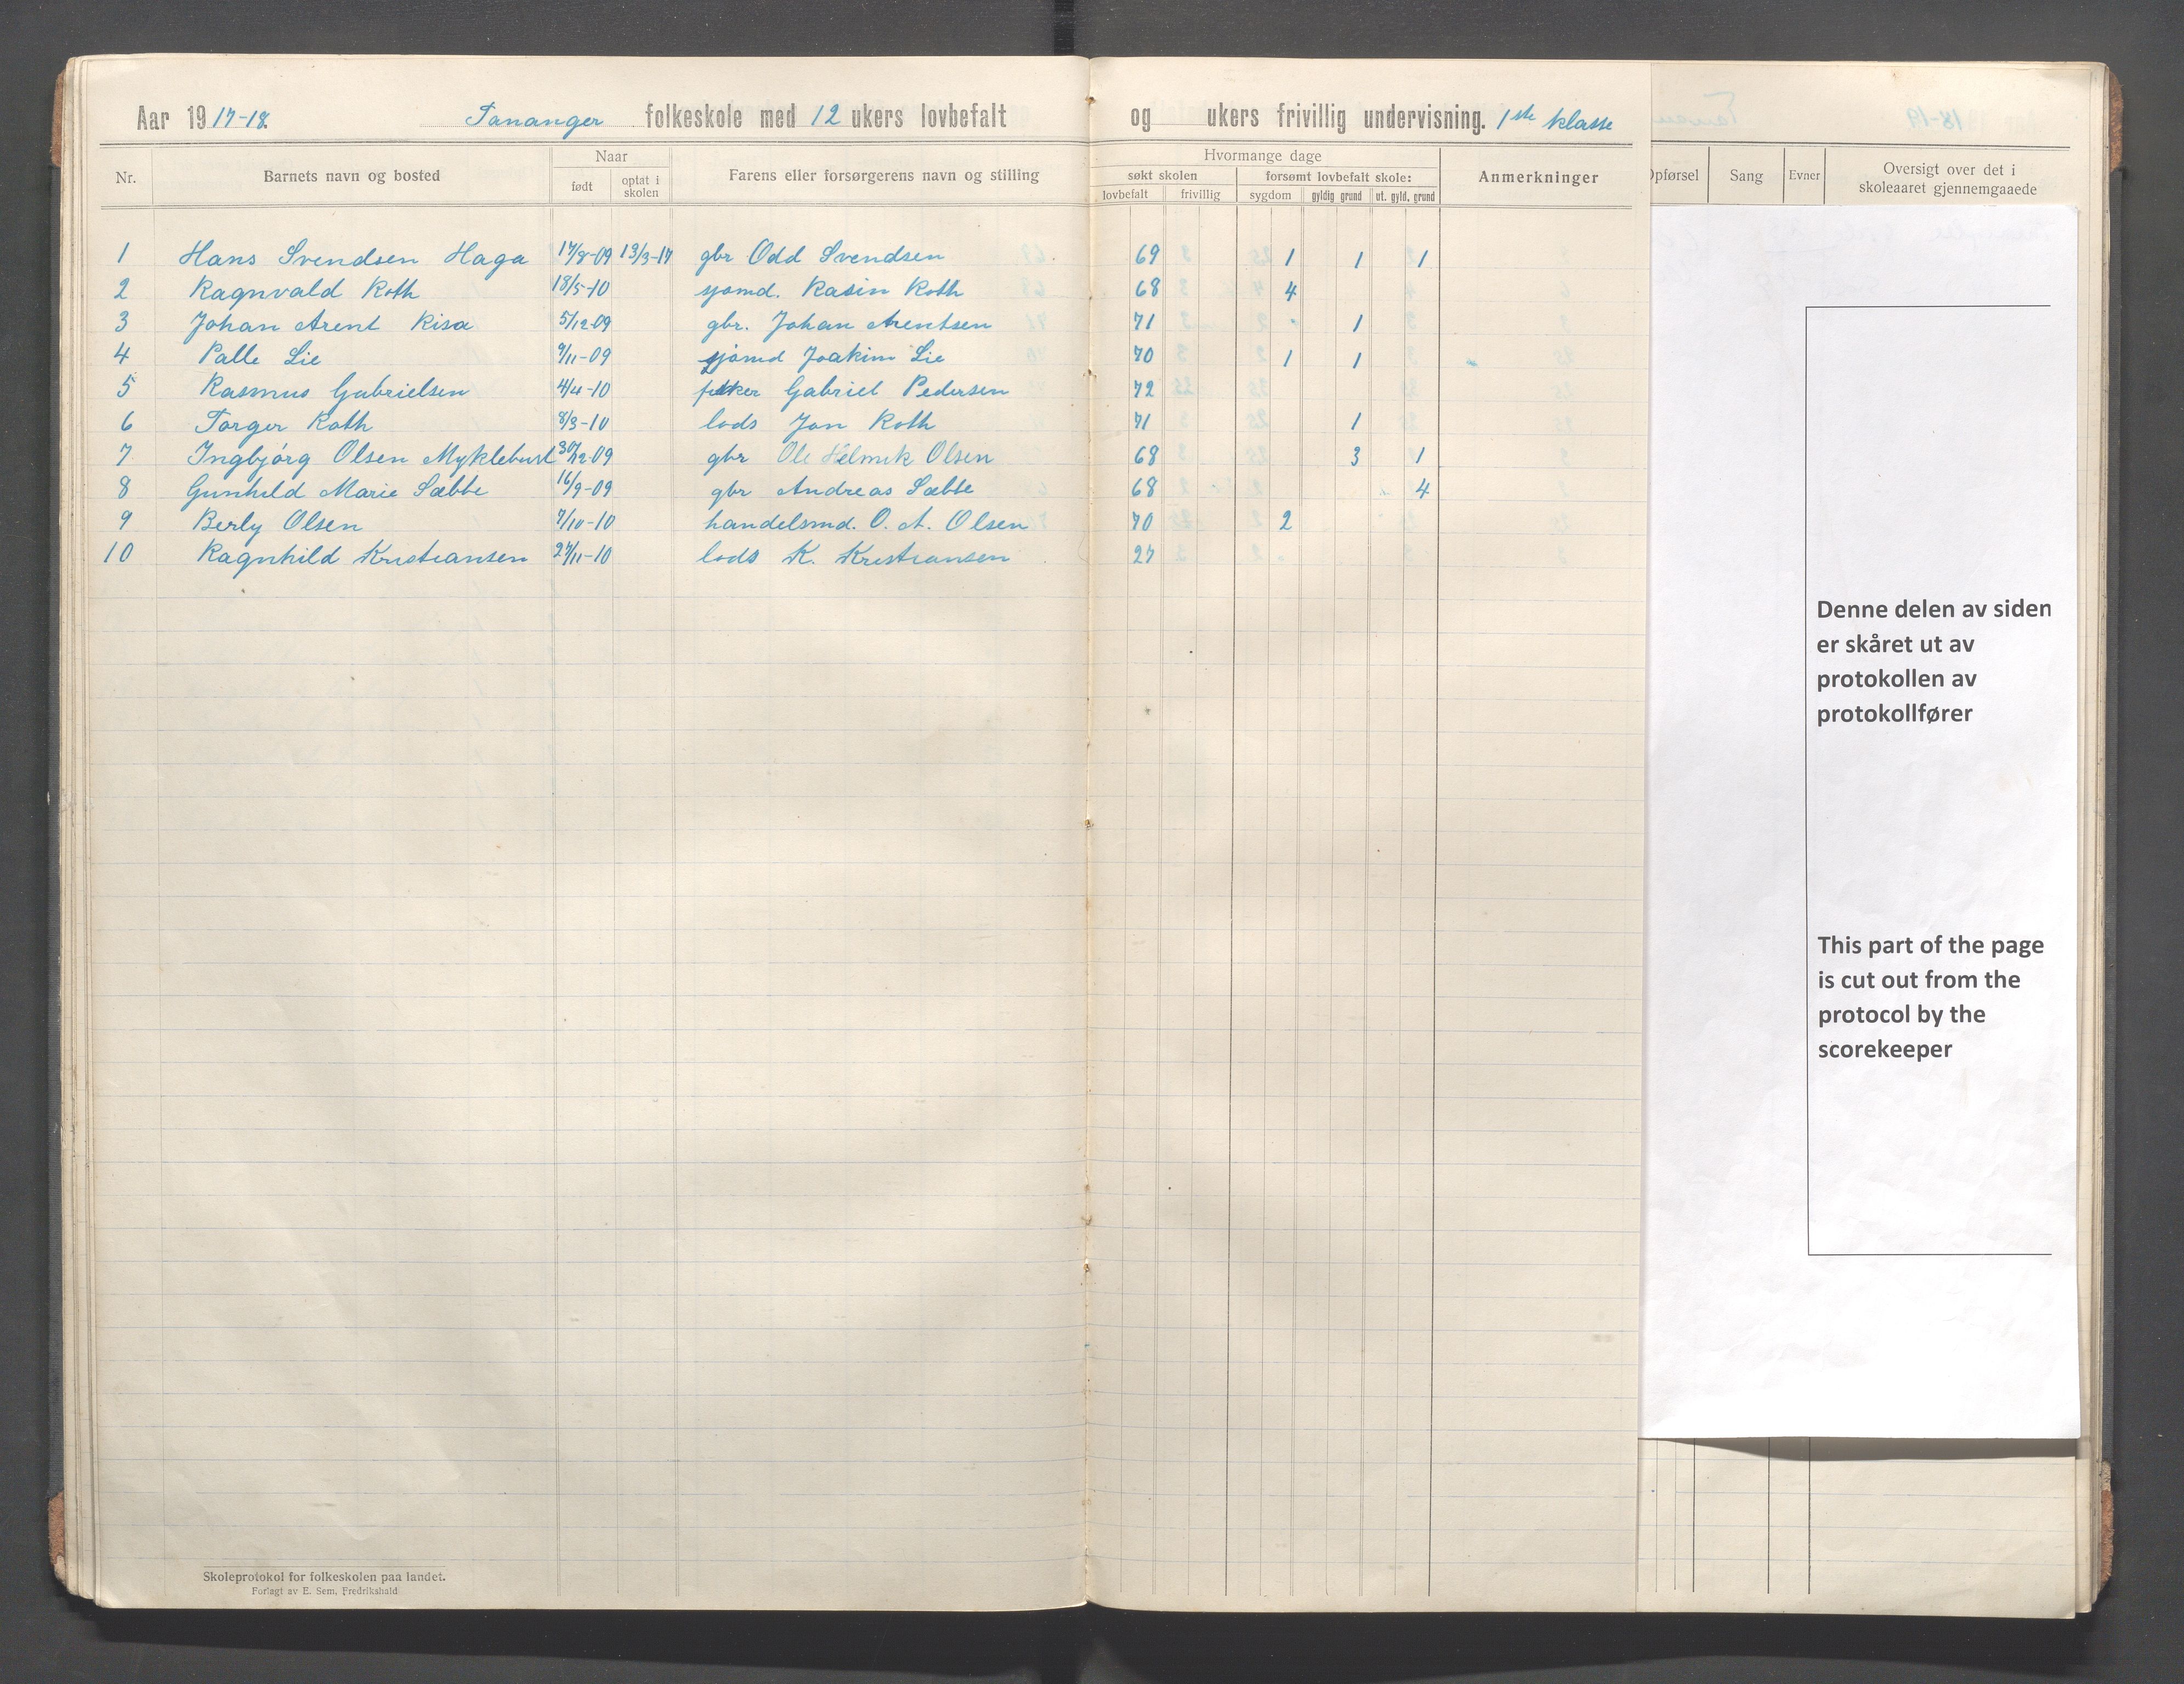 Aar 1917-18. Tananger folkeskole med 12 ukers lovbefalt og ukers frivillig undervisning. 1ste klasse
Nr. Barnets navn og bosted Naar født optat i skolen Farens eller forsørgerens navn og stilling Hvormange dage søkt skolen lovbefalt frivillig forsømt lovbefalt skole: sygdom gyldig grund ut. gyld. grund Anmerkninger
Opførsel Sang Evner Oversigt over det i skoleaaret gjennemgaaede
1 Hans Svendsen Haga 17/8-09 13/3-17 gbr Odd Svendsen 69 1 1 1
2 Ragnvald Roth 18/5-10 sjømd. Rasin Roth 68 4
3 Johan Arent Risa 5/12-09 gbr. Johan Arentsen 71 1
4 Palle Lie 9/11-09 sjømd Joakim Lie 70 1 1
5 Rasmus Gabrielsen 4/4-10 fisker Gabriel Pedersen 72
6 Torger Roth 8/3-10 lods Jon Roth 71 1
7 Ingbjørg Olsen Myklebust 30/12-09 gbr Ole Helmik Olsen 68 3 1
8 Gunhild Marie Sæbbe 16/9-09 gbr Andreas Sæbbe 68 4
9 Berly Olsen 7/10-10 handelsmd. O. A. Olsen 70 2
10 Ragnhild Kristiansen 27/11-10 lods K. Kristiansen 27
Denne delen av siden
er skåret ut av
protokollen av
protokollfører
This part of the page
is cut out from the
protocol by the
scorekeeper
Skoleprotokol for folkeskolen paa landet.
Forlagt av E. Sem, Fredrikshald